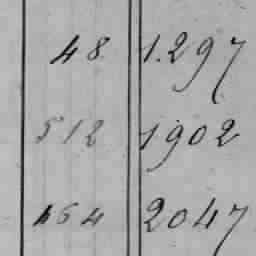 48 1.297
512 1902
164 2047